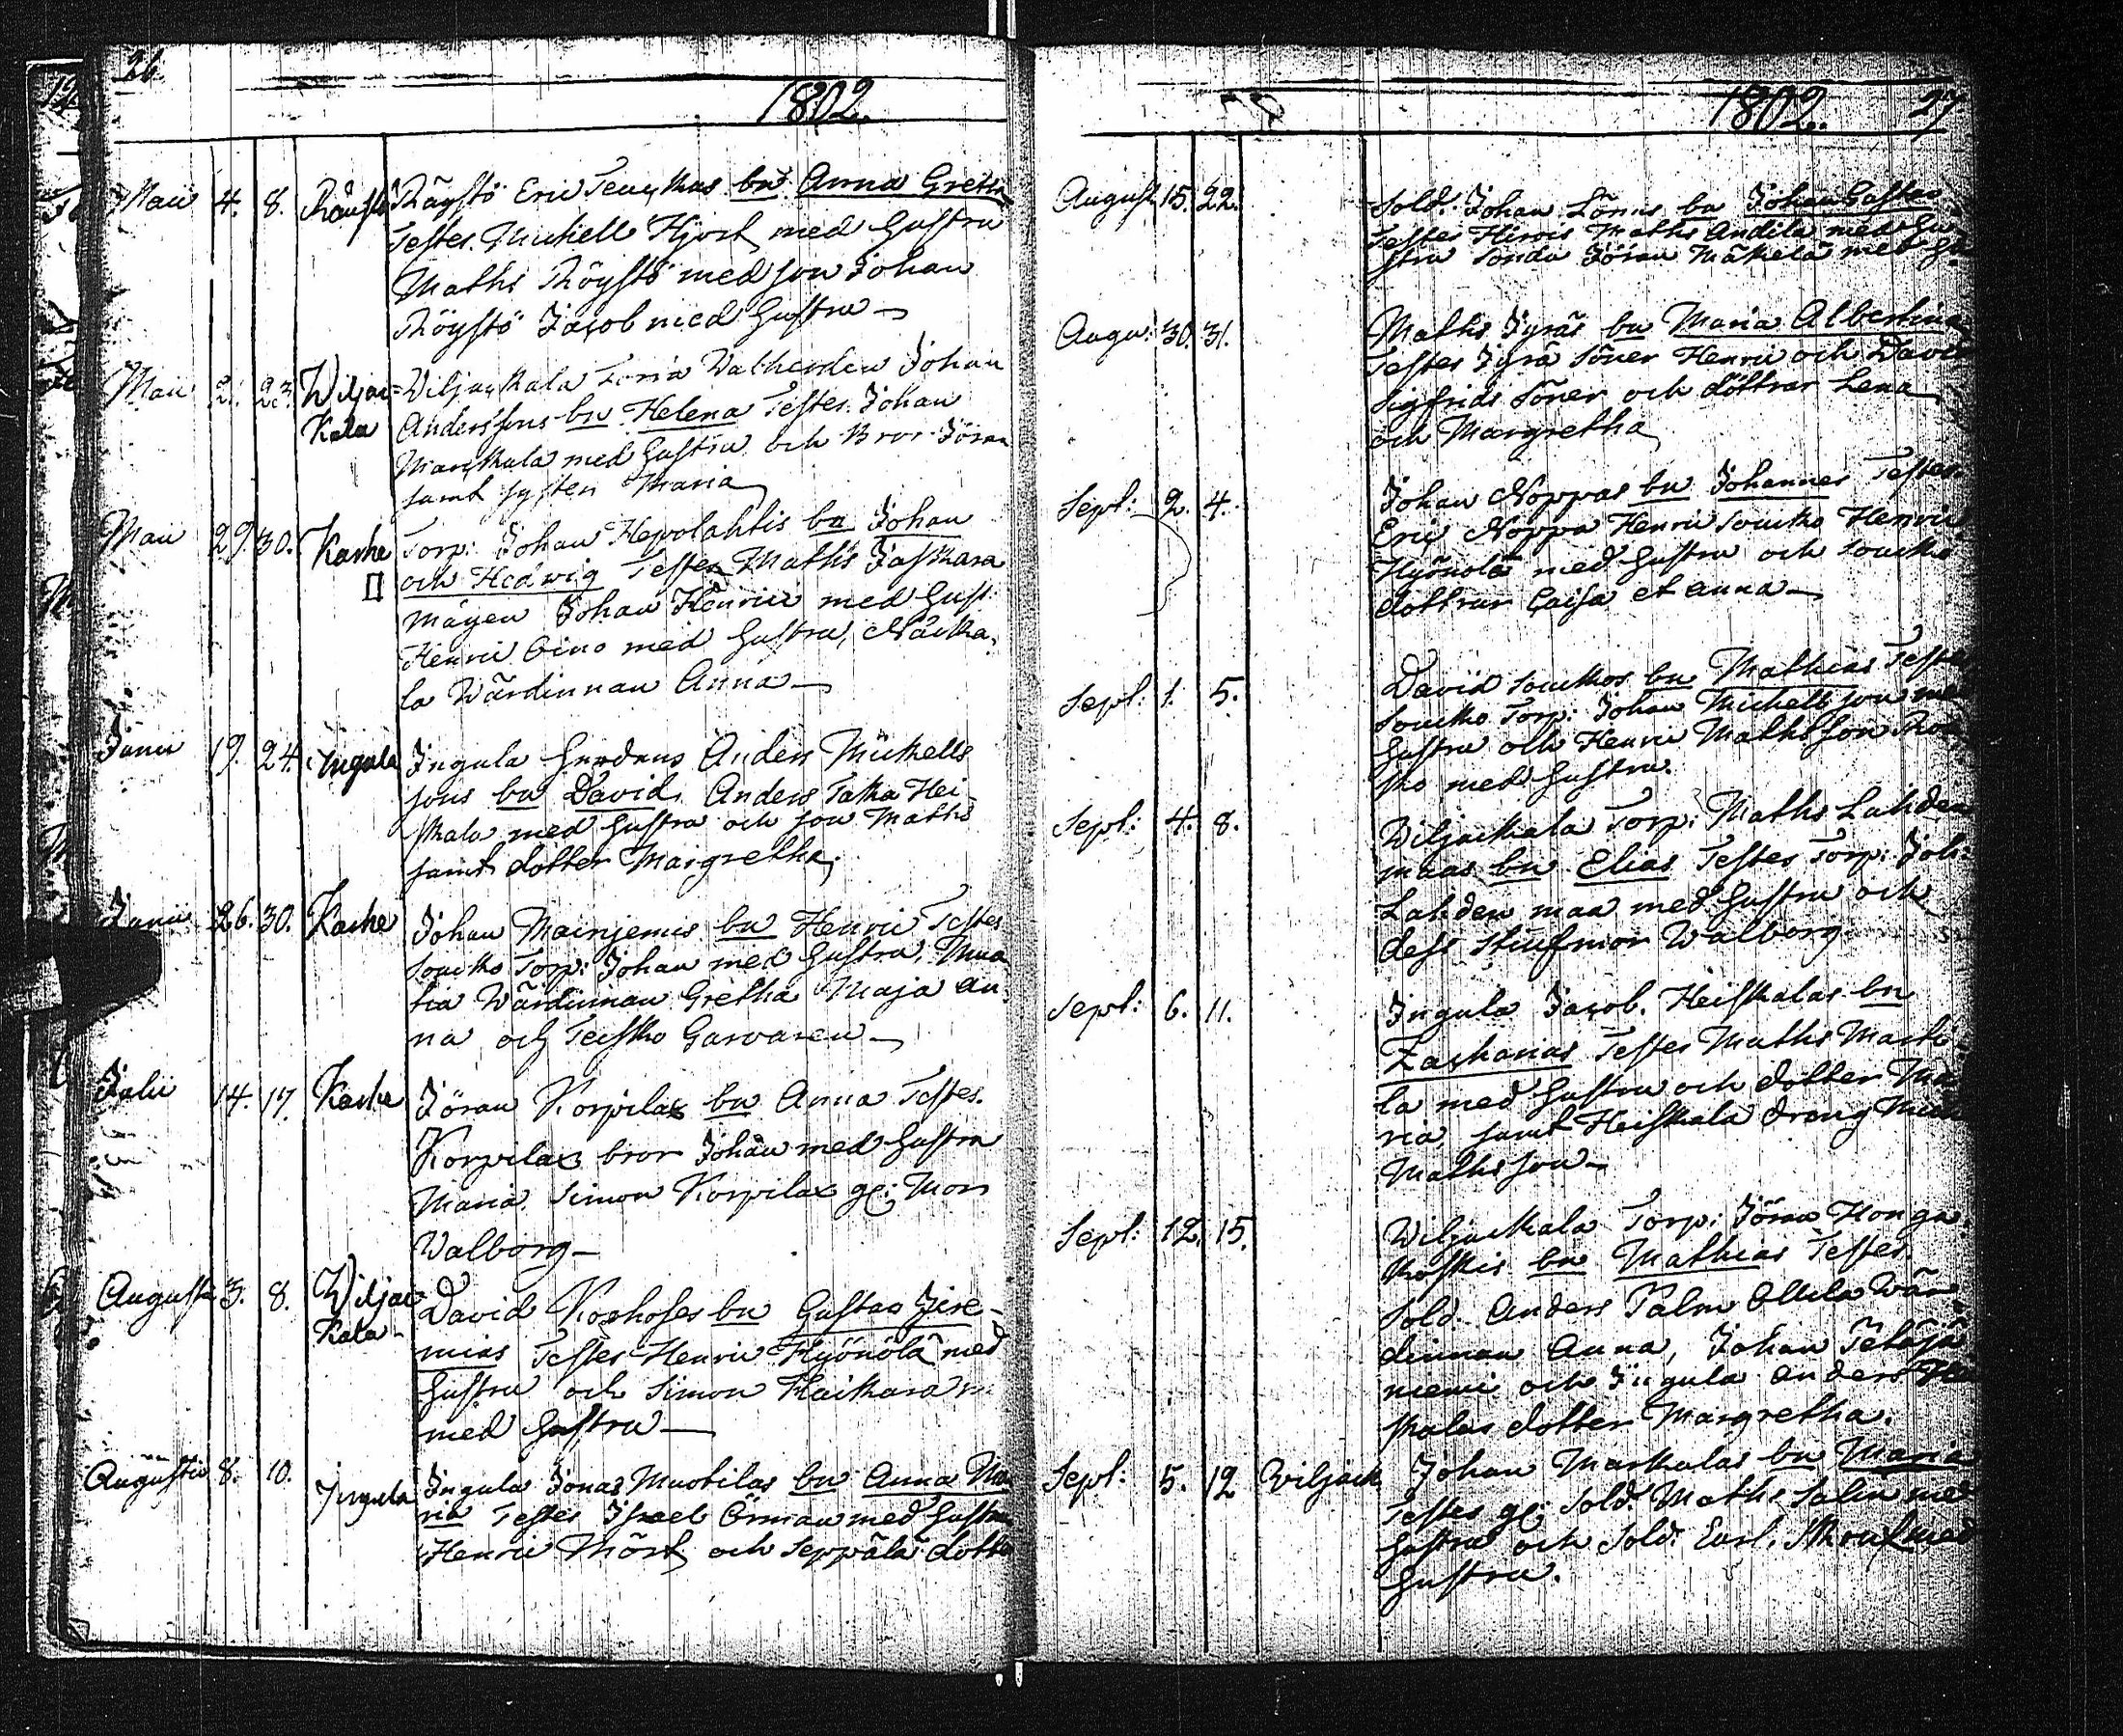 26.
1802.
Maii 4. 8. Röystö Röystö Eric Teuskus bn Anna Greta
Testes. Michell Hjort med hustru
Maths Röystö med son Johan
Röystö Jacob med hustru
Maii 21. 23. Wiljackala Wiljackala Johan
Anderssons bn Helena Testes. Johan
Manskala med hustru och Bror Jöran
samt syster Maria
Maii 29. 30. Karhe Torp: Johan Hepolahtis bn Johan
och Hedwig Testes Maths Jaskara
mågen Johan Henric med hust:
Henric Oino med hustru,
la Wärdinnan Anna
Junii 19. 24. Ingula Ingula Anders Mickells
sons bn David, Anders Taka Hei-
skala med hustru och son Maths
samt dotter Margretha,
Junii 26. 30. Karhe Johan Mainjemis bn Henric Testes
Soucko Torp: Johan med hustru,
Wärdinnan Gretha Maja An-
na och Teisko Garvaren
Julii 14. 17. Karhe Jöran Korpilax bn Anna Testes.
Korpilax bror Johan med hustru
Maria. Simon Korpilax gl: Mor
Walborg
Augusti 3. 8. Wiljackala David Koxhoses bn Gustav Jere-
mias Testes Henric Hyönölä med
hustru och Simon Haikara
med hustru
Augusti 8. 10. Ingula Ingula Jonas Muotilas bn Anna Ma
ria Testes Israel Örman med hustru
Henric Mört och Seppälä dotter
1802. 27
August 15. 22. Sold. Johan Lönns bn Johan Gustav
Testes Maths Andila med hu-
stru Jöran Mäkelä med hu
Augu: 30. 31. Maths Jyräs bn Maria Albertina
Testes Jyrä Söner Henric och David
Sigfrids Söner och döttrar Lena
och Margretha
Sept: 2. 4. Johan Noppas bn Johannes Testes
Eric Noppa Henric Soucko Henric
Hyönölä med hustru och Soucko
döttrar Caisa et Anna
Sept: 1. 5. David Souckos bn Mathias Testes
Soucko Torp: Johan Michellsson med
hustru och Henric Mathsson
sko med hustru.
Sept: 4. 8. Wiljackala Torp: Maths Lahden
maas bn Elias Testes Torp: Joh:
Lahden maa med hustru och
dess Walborg
Sept: 6. 11. Ingula Jacob. Heiskalas bn
Zacharias Testes Maths Marti-
la med hustru och dotter Ma
ria samt Heiskala dreng Mich
Mathsson
Sept: 12. 15. Wiljackala Torp: Jöran Honga
koskis bn Mathias Testes
Sold. Anders Palm Ollila Wär-
dinnan Anna, Johan
niemi och Ingula Anders Hei
skalas dotter Margretha.
Sept: 5. 12 Wiljack Johan Markulas bn Maria
Testes gl: Sold. Maths Salin med
hustru och Sold. Carl. med
hustru.